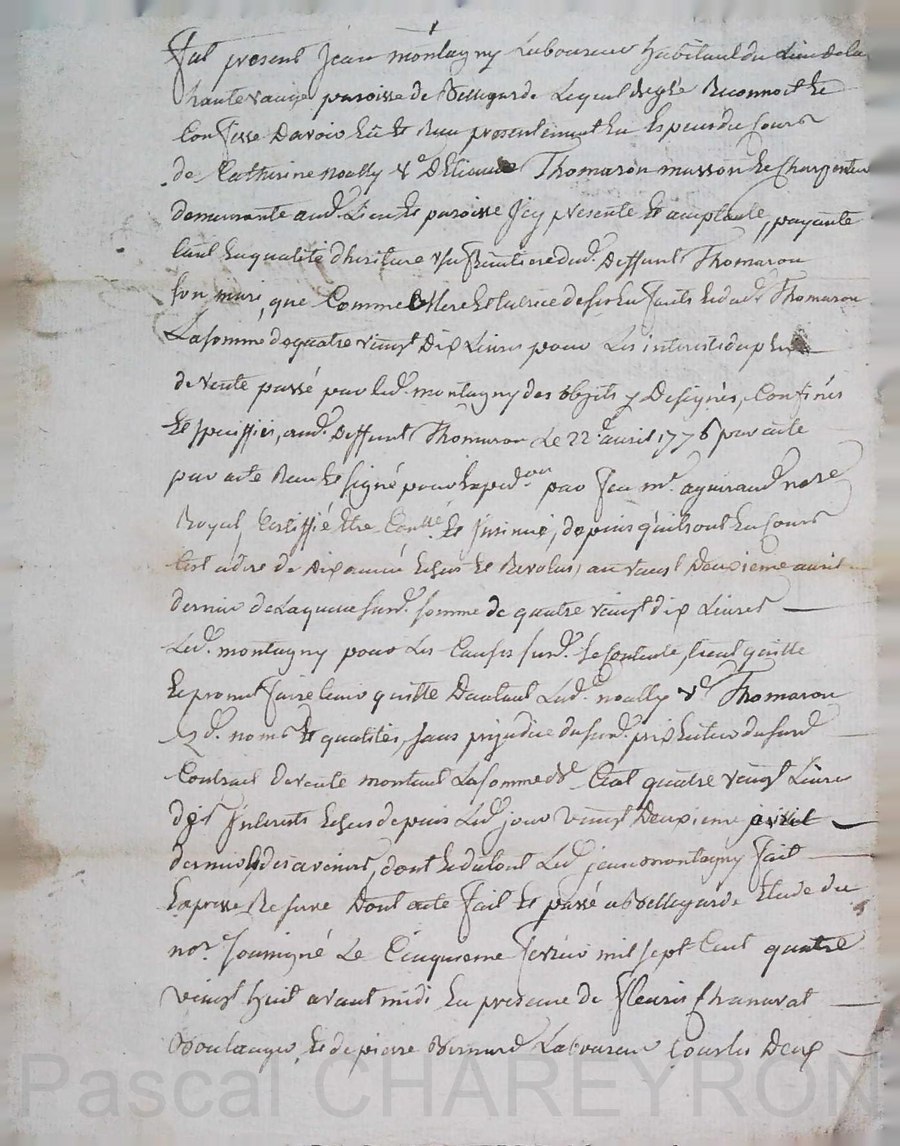 Fut présent Jean montagny Laboureur habitant du Lieu de la
haute paroisse de Bellegarde Lequel de gré Reconnoit Et
Confesse Davoir Eü Et Reçu présentement En Especes du Cours
de Catherine noally Ve D'Etienne Thomaron masson Et Charpentier
demeurante aud. Lieu Et paroisse Icy présente Et acceptante, payante
tant En qualité dheritiere dud. Deffunt Thomaron
son mari, que Comme Mere Et tutrice de ses Enfants Et dud. Thomaron
La somme de quatre vingt Dix Livres pour Les interests du prix
de vente passé par led. montagny des objets y Designés, Confinés
Et speciffiés, aud. Deffunt Thomaron Le 22e. avril 1776 par acte
par acte Reçu Et signé pour Expedon. par feu me. aguiraud nore
Royal, Certiffié Etre Contlé. Et Insinué, depuis qu'ils ont Eu Cours
C'est adire de Dix année Echus Et Revolus, au vingt Deuxieme avril
dernier de Laquelle susd. somme de quatre vingt dix Livres
Led. montagny pour Les Causes susd. se Contente, tient quitte
Et promet faire tenir quitte Dautant Lad. noally Ve. Thomaron
Esd. noms Et qualités, sans prejudice du susd. prix Entier du susd.
Contrat De vente montant La somme de Cent quatre vingt Livres
des Interests Echus depuis Led. jour vingt Deuxieme avril
dernier, Et des avenirs, dont Et du tout Led. jean montagny fait
Expresse Reserve Dont acte fait Et passé a Bellegarde Etude du
nore. soussigné Le Cinquieme fevrier mil sept Cent quatre
vingt huit avant midi En présence de fleuris Chanavat
Boulanger, Et de pierre Bernard Laboureur tous les Deux
Pascal CHAREYRON